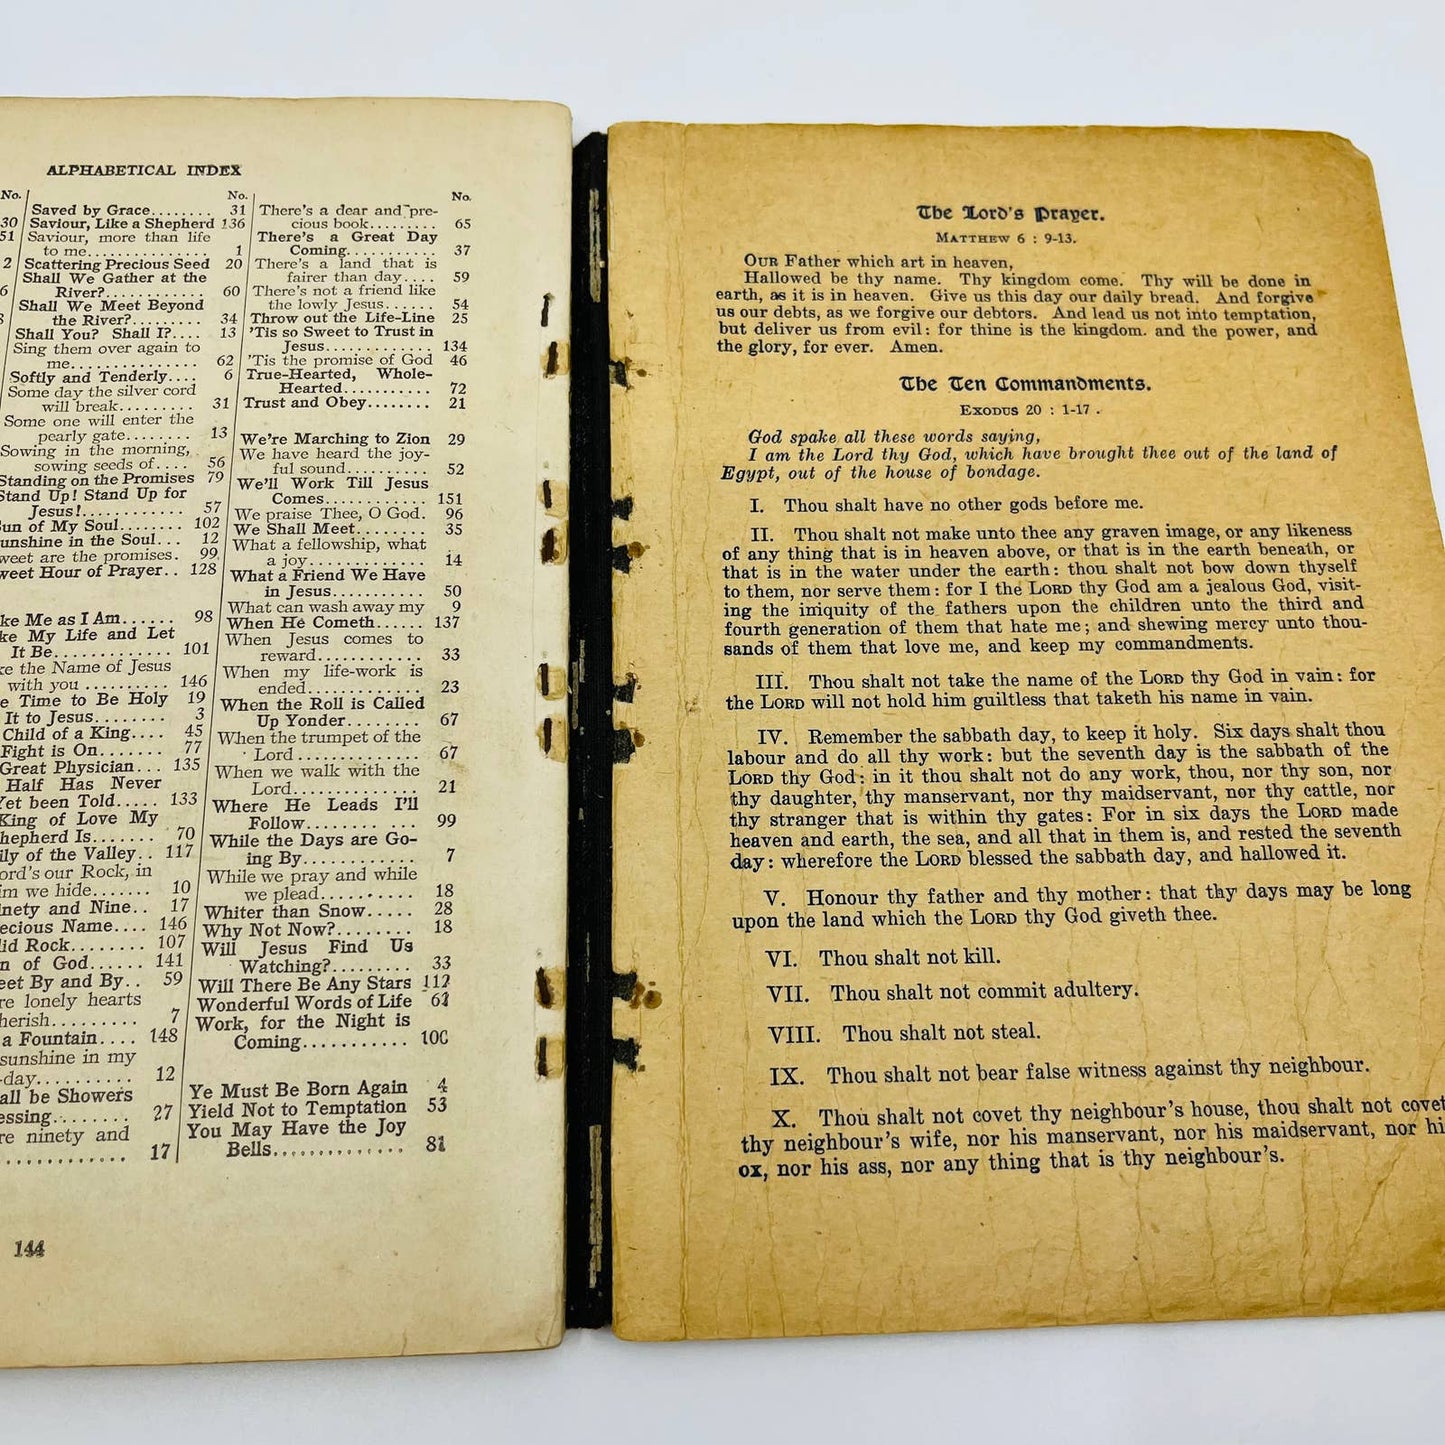 ALPHABETICAL INDEX
No.
30
51
2
6
No.
Saved by Grace........ 31
Saviour, Like a Shepherd 136
Saviour, more than life
to me............... 1
Scattering Precious Seed 20
Shall We Gather at the
River?............ 60
Shall We Meet Beyond
the River?......... 34
Shall You? Shall I?.... 13
Sing them over again to
me............... 62
Softly and Tenderly.... 6
Some day the silver cord
will break......... 31
Some one will enter the
pearly gate........ 13
Sowing in the morning,
sowing seeds of.... 56
Standing on the Promises 79
Stand Up! Stand Up for
Jesus!............ 57
un of My Soul........ 102
unshine in the Soul... 12
weet are the promises. 99
weet Hour of Prayer.. 128
ke Me as I Am...... 98
ke My Life and Let
It Be............. 101
ke the Name of Jesus
with you .......... 146
e Time to Be Holy 19
It to Jesus........ 3
Child of a King.... 45
Fight is On....... 77
Great Physician... 135
Half Has Never
Yet been Told..... 133
King of Love My
hepherd Is........ 70
ily of the Valley.. 117
ord's our Rock, in
im we hide....... 10
inety and Nine.. 17
ecious Name.... 146
lid Rock........ 107
n of God...... 141
eet By and By.. 59
re lonely hearts
herish......... 7
a Fountain.... 148
sunshine in my
-day.......... 12
all be Showers
essing........ 27
re ninety and
............. 17
No.
There's a dear and pre-
cious book......... 65
There's a Great Day
Coming........... 37
There's a land that is
fairer than day.... 59
There's not a friend like
the lowly Jesus...... 54
Throw out the Life-Line 25
'Tis so Sweet to Trust in
Jesus............. 134
'Tis the promise of God 46
True-Hearted, Whole-
Hearted........... 72
Trust and Obey........ 21
We're Marching to Zion 29
We have heard the joy-
ful sound.......... 52
We'll Work Till Jesus
Comes............ 151
We praise Thee, O God. 96
We Shall Meet........ 35
What a fellowship, what
a joy............. 14
What a Friend We Have
in Jesus........... 50
What can wash away my 9
When He Cometh...... 137
When Jesus comes to
reward............ 33
When my life-work is
ended............. 23
When the Roll is Called
Up Yonder........ 67
When the trumpet of the
Lord ............. 67
When we walk with the
Lord............. 21
Where He Leads I'll
Follow........ ... 99
While the Days are Go-
ing By............ 7
While we pray and while
we plead.......... 18
Whiter than Snow..... 28
Why Not Now?........ 18
Will Jesus Find Us
Watching?......... 33
Will There Be Any Stars 112
Wonderful Words of Life 62
Work, for the Night is
Coming........... 100
Ye Must Be Born Again 4
Yield Not to Temptation 53
You May Have the Joy
Bells.............. 81
144
The Lord's Prayer.
MATTHEW 6 : 9-13.
OUR Father which art in heaven,
Hallowed be thy name. Thy kingdom come. Thy will be done in
earth, as it is in heaven. Give us this day our daily bread. And forgive
us our debts, as we forgive our debtors. And lead us not into temptation,
but deliver us from evil: for thine is the kingdom. and the power, and
the glory, for ever. Amen.
The Ten Commandments.
EXODUS 20 : 1-17 .
God spake all these words saying,
I am the Lord thy God, which have brought thee out of the land of
Egypt, out of the house of bondage.
I. Thou shalt have no other gods before me.
II. Thou shalt not make unto thee any graven image, or any likeness
of any thing that is in heaven above, or that is in the earth beneath, or
that is in the water under the earth: thou shalt not bow down thyself
to them, nor serve them: for I the LORD thy God am a jealous God, visit-
ing the iniquity of the fathers upon the children unto the third and
fourth generation of them that hate me; and shewing mercy unto thou-
sands of them that love me, and keep my commandments.
III. Thou shalt not take the name of the LORD thy God in vain: for
the LORD will not hold him guiltless that taketh his name in vain.
IV. Remember the sabbath day, to keep it holy. Six days shalt thou
labour and do all thy work: but the seventh day is the sabbath of the
LORD thy God: in it thou shalt not do any work, thou, nor thy son, nor
thy daughter, thy manservant, nor thy maidservant, nor thy cattle, nor
thy stranger that is within thy gates: For in six days the LORD made
heaven and earth, the sea, and all that in them is, and rested the seventh
day: wherefore the LORD blessed the sabbath day, and hallowed it.
V. Honour thy father and thy mother: that thy days may be long
upon the land which the LORD thy God giveth thee.
VI. Thou shalt not kill.
VII. Thou shalt not commit adultery.
VIII. Thou shalt not steal.
IX. Thou shalt not bear false witness against thy neighbour.
X. Thou shalt not covet thy neighbour's house, thou shalt not covet
thy neighbour's wife, nor his manservant, nor his maidservant, nor hi
ox, nor his ass, nor any thing that is thy neighbour's.